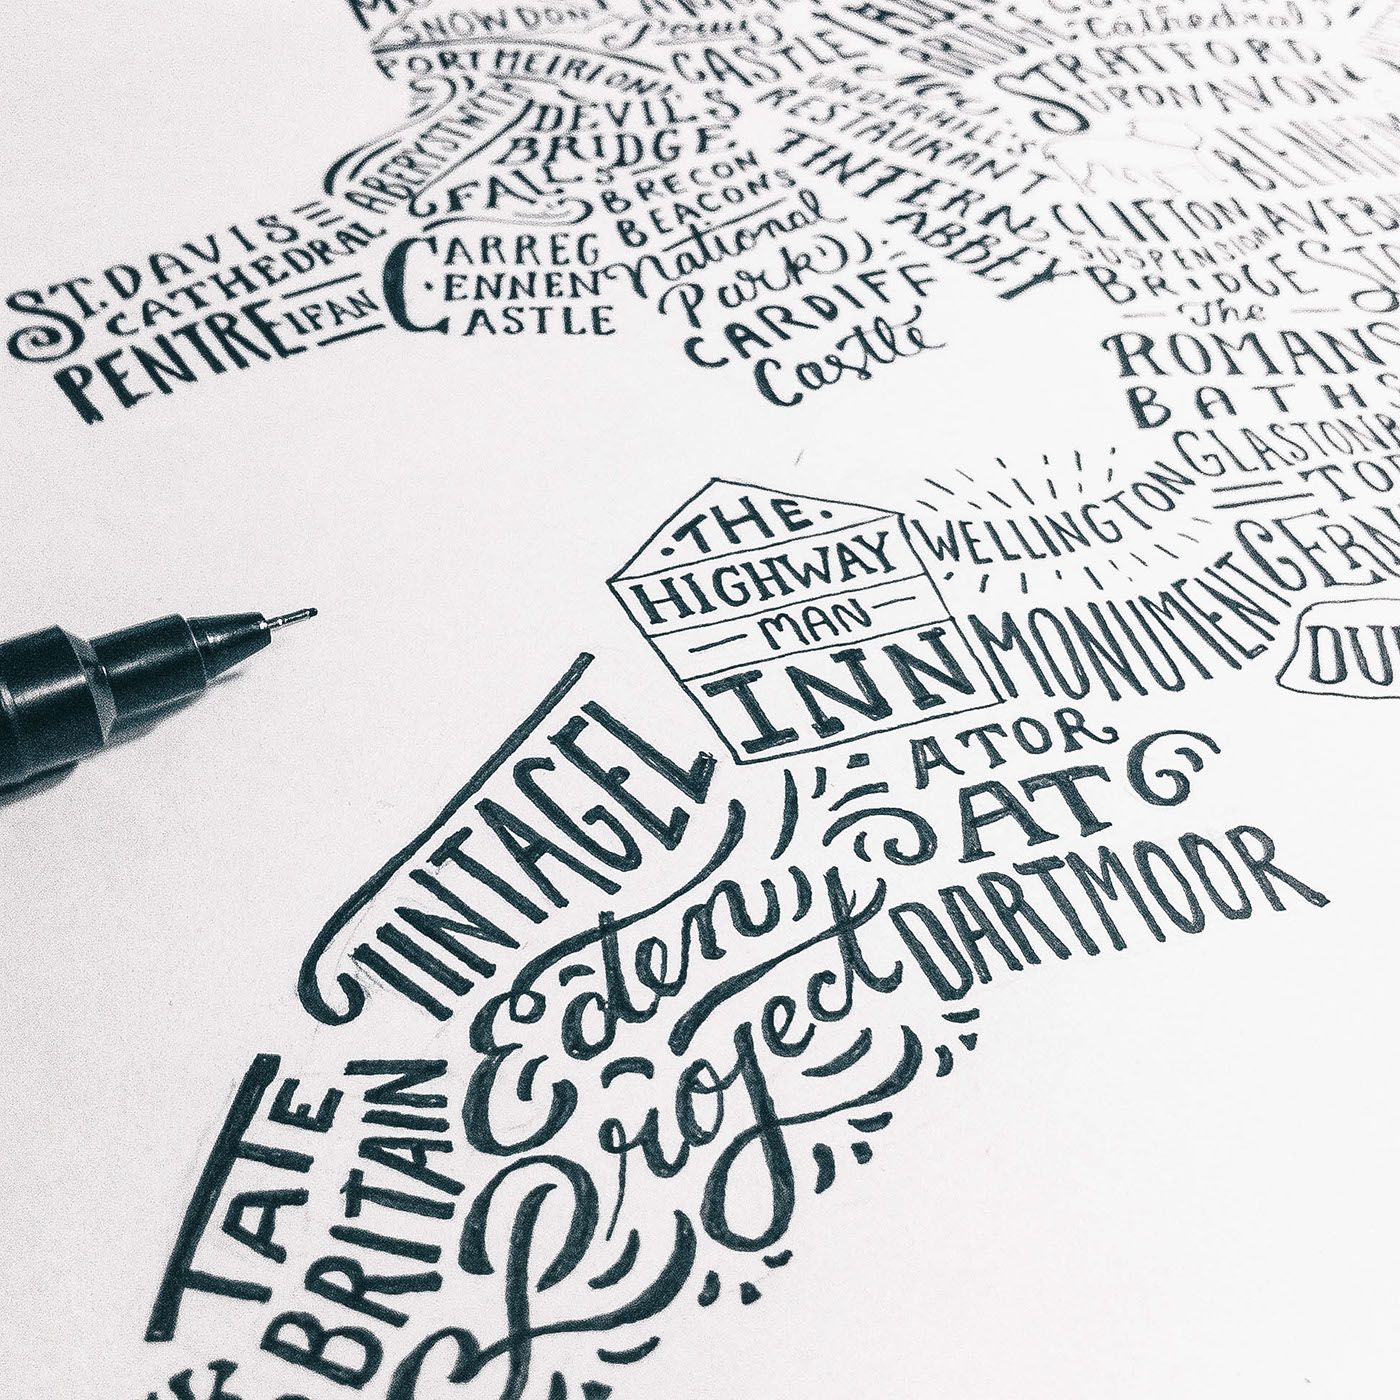 SNOWDON
Powys
PORTMEIRION
CASTLE
BRIDGE
Cathedral
STRATFORD
UPON AVON
ABERYSTWYTH
DEVIL'S
BRIDGE
FALLS
UNDERHILL'S
RESTAURANT
TINTERN
ABBEY
BRECON
BEACONS
National
Park
CARDIFF
Castle
ST. DAVIS
CATHEDRAL
PENTRE IFAN
CARREG
CENNEN
CASTLE
CLIFTON
SUSPENSION
BRIDGE
The
ROMAN
BATHS
WELLINGTON
MONUMENT
·THE·
HIGHWAY
MAN
INN
TINTAGEL
ATOR
AT
Eden
Project
DARTMOOR
TATE
BRITAIN